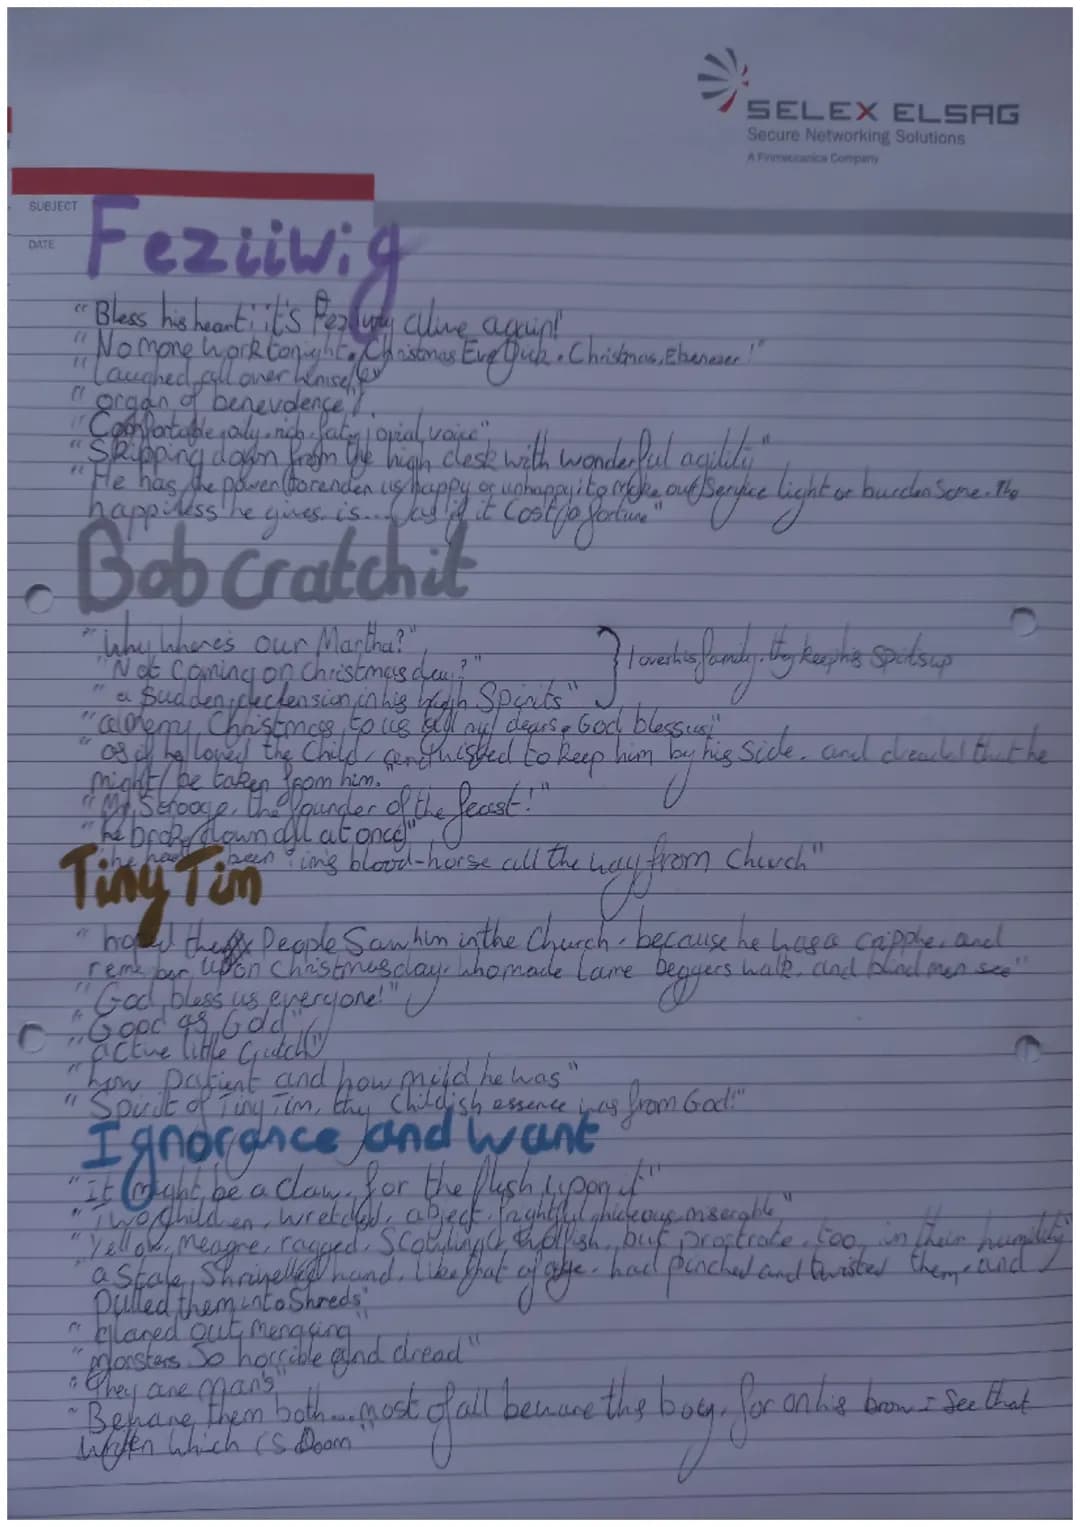 SELEX ELSAG
Secure Networking Solutions
A Finmeccanica Company
SUBJECT
DATE
Feziiwig
"Bless his heart; it's Feziiwig alive again!"
"No more work tonight. Christmas Eve Dick. Christmas, Ebenezer!"
"Laughed all over himself"
"organ of benevolence".
"Comfortable, oily, rich, fat, jovial voice"
"Skipping down from the high desk with wonderful agility"
"He has the power to render us happy or unhappy; to make our service light or burdensome. The
happiness he gives is... as if it cost a fortune"
Bob Cratchit
"Why where's our Martha?"
"Not coming on Christmas day?"
loves his family, they keep his spirits up
"a sudden declension in his high Spirits"
"a merry Christmas to us all my dears. God bless us!"
"as if he loved the child, and wished to keep him by his side, and dreaded that he
might be taken from him."
"Mr Scrooge, the founder of the feast!"
"he broke down all at once"
"he had been Tim's blood-horse all the way from Church"
Tiny Tim
"hoped the People Saw him in the Church, because he was a cripple, and
remember upon Christmas day, who made lame beggers walk, and blind men see"
"God bless us everyone!"
"Good as Gold"
"active little Crutch"
"how patient and how mild he was"
"Spirit of Tiny Tim, thy Childish essence was from God!"
Ignorance and want
"It might be a claw, for the flesh upon it"
"Two children, wretched, abject, frightful, hideous, miserable"
"Yellow, meagre, ragged, Scowling, wolfish, but prostrate, too, in their humility"
"a Stale, Shrivelled hand, like that of age, had pinched and twisted them, and
Pulled them into Shreds"
"Glared out menacing"
"monsters So horrible and dread"
"They are Man's"
"Beware them both... most of all beware this boy, for on his brow I See that
written which is Doom"